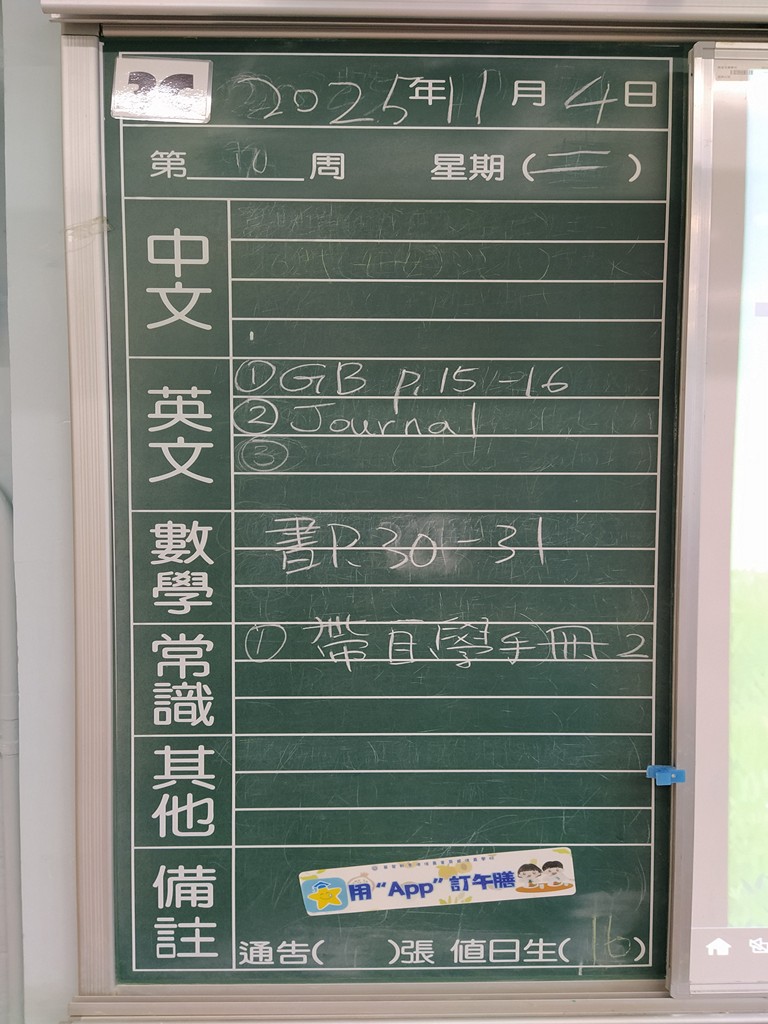 2025年11月4日
第 周 星期(二)
中文
英文
①GB p.15-16
②Journal
③
數學
書P.30-31
常識
① 帶自學手冊2
其他
備註
用“App”訂午膳
通告( )張 值日生(16)